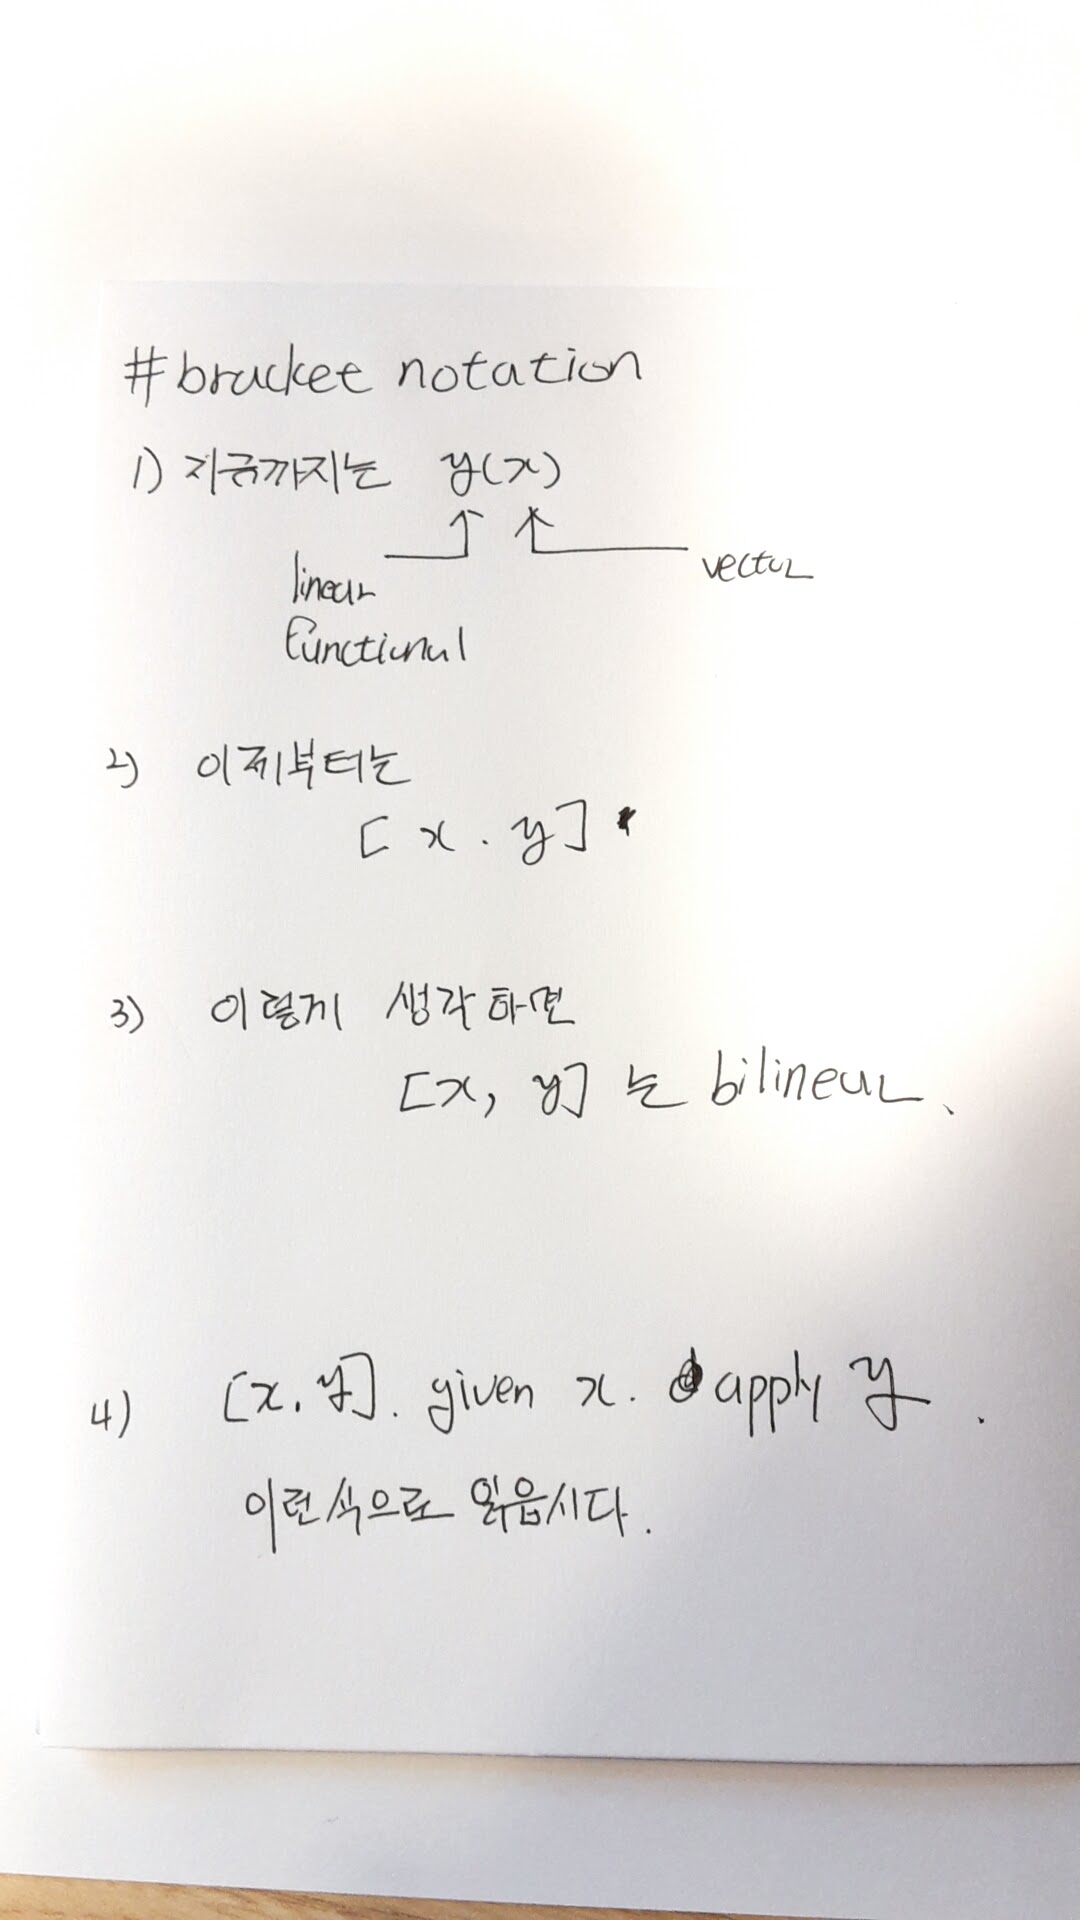 # bracket notation
1) 지금까지는 y(x)
linear vector
functional
2) 이제부터는
[x. y]
3) 이렇게 생각하면
[x, y] 는 bilinear.
4) [x, y]. given x. apply y.
이런식으로 읽읍시다.